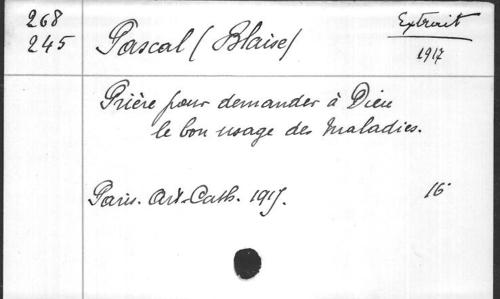 268
245
Pascal (Blaise)
Extrait
1917
Prière pour demander à Dieu
le bon usage des Maladies.
Paris. Art-Cath. 1917.
16°